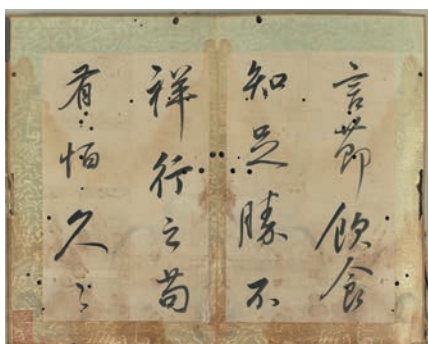 言節飲食
知足勝不
祥行之苟
有恒久々